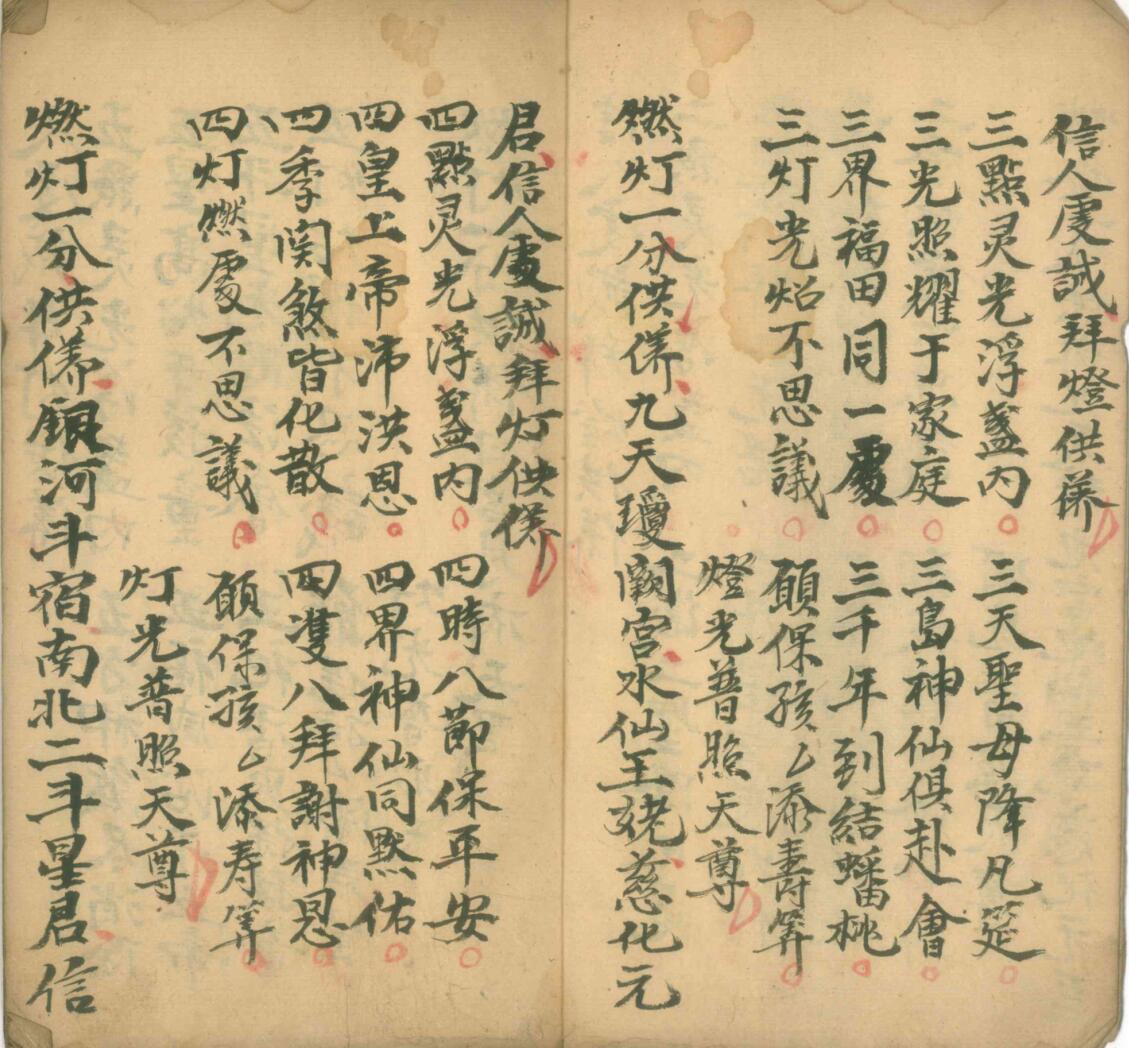 信人虔誠拜燈供養
三點灵光浮盞内 三天聖母降凡筵
三光照耀于家庭 三島神仙俱赴會
三界福田同一處 三千年到結蟠桃
三灯光炤不思議 願保孩〻添壽筭
燈光普照天尊
燃灯一分供养九天瓊闕宫水仙王姥慈化元
君信人虔誠拜灯供养
四點灵光浮盞内 四時八節保平安
四皇上帝沛洪恩 四界神仙同黙佑
四季関煞皆化散 四雙八拜謝神恩
四灯燃處不思議 願保孩〻添寿筭
灯光普照天尊
燃灯一分供养銀河斗宿南北二斗星君信